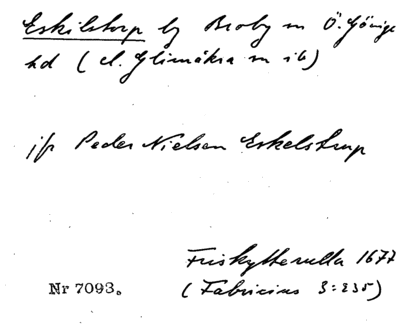 Eskilstorp by Broby sn Ö. Göinge
hd (el. Glimåkra sn ib)
jfr Peder Nielsen Eskelstrup
Friskytterulla 1677
Nr 7093. (Fabricius 3:235)